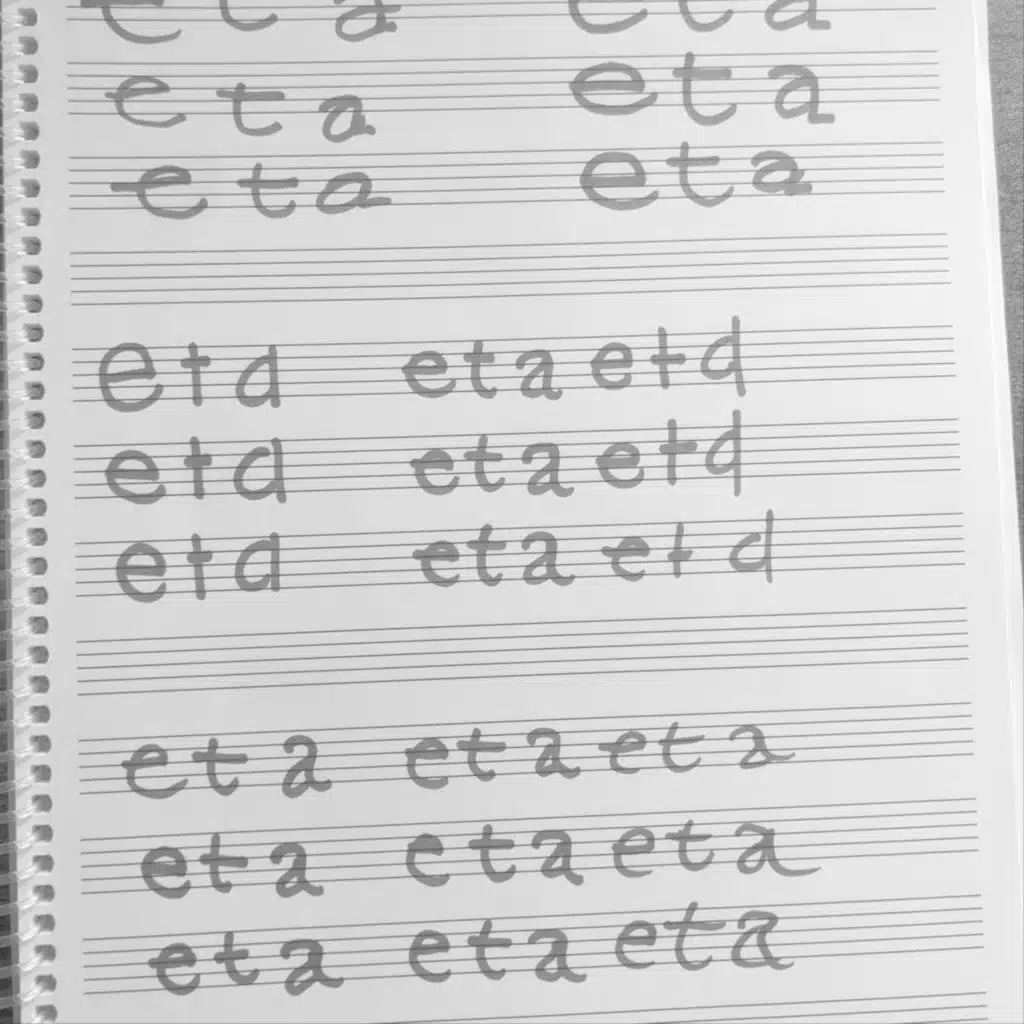 eta eta
eta eta
eta eta
etd eta etd
etd eta etd
etd eta etd
eta eta eta
eta eta eta
eta eta eta